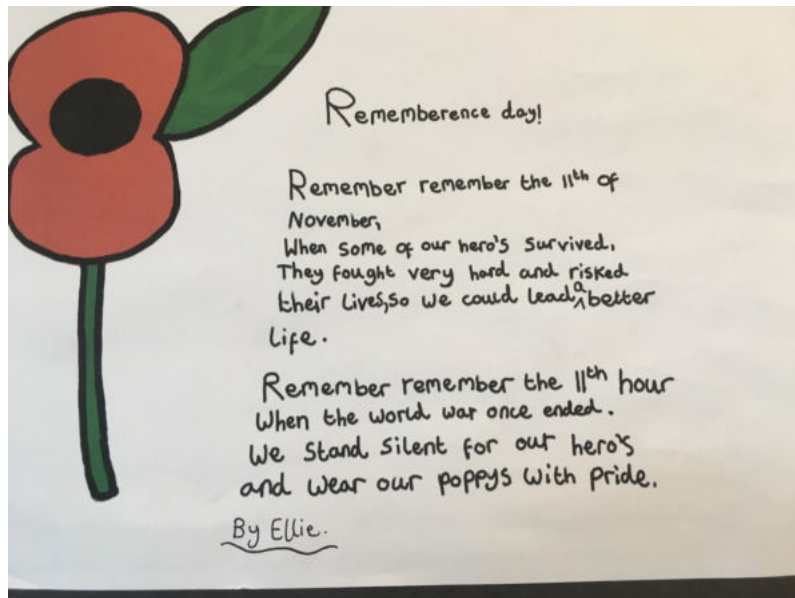 Rememberence day!
Remember remember the 11th of
November,
When some of our hero's survived.
They fought very hard and risked
their lives,so we could lead a better
life.
Remember remember the 11th hour
When the world war once ended.
We stand silent for our hero's
and wear our poppys with pride.
By Ellie.